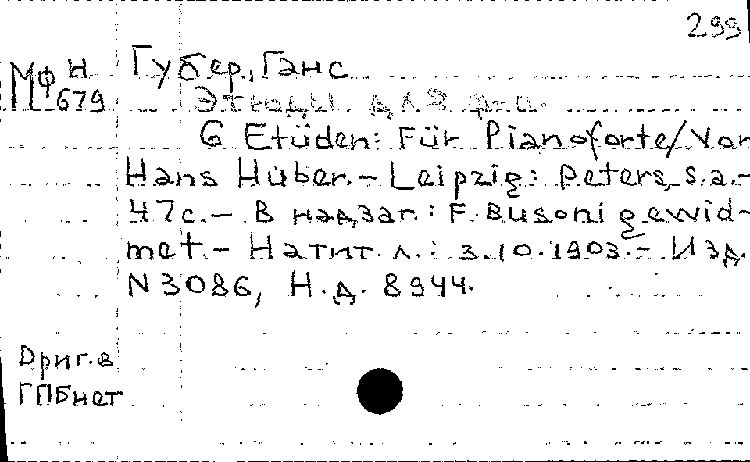 299
МФ Н 679
Губер, Ганс
Этюды для ф-п.
6 Etüden: Für Pianoforte/Von
Hans Huber.- Leipzig: Peters, s.a.-
47с.- В надзаг.: F. Busoni gewid-
met.- На тит. л.: 3.10.1903.- Изд.
N 3086, Н.д. 8944.
Ориг. в
ГПБ нет